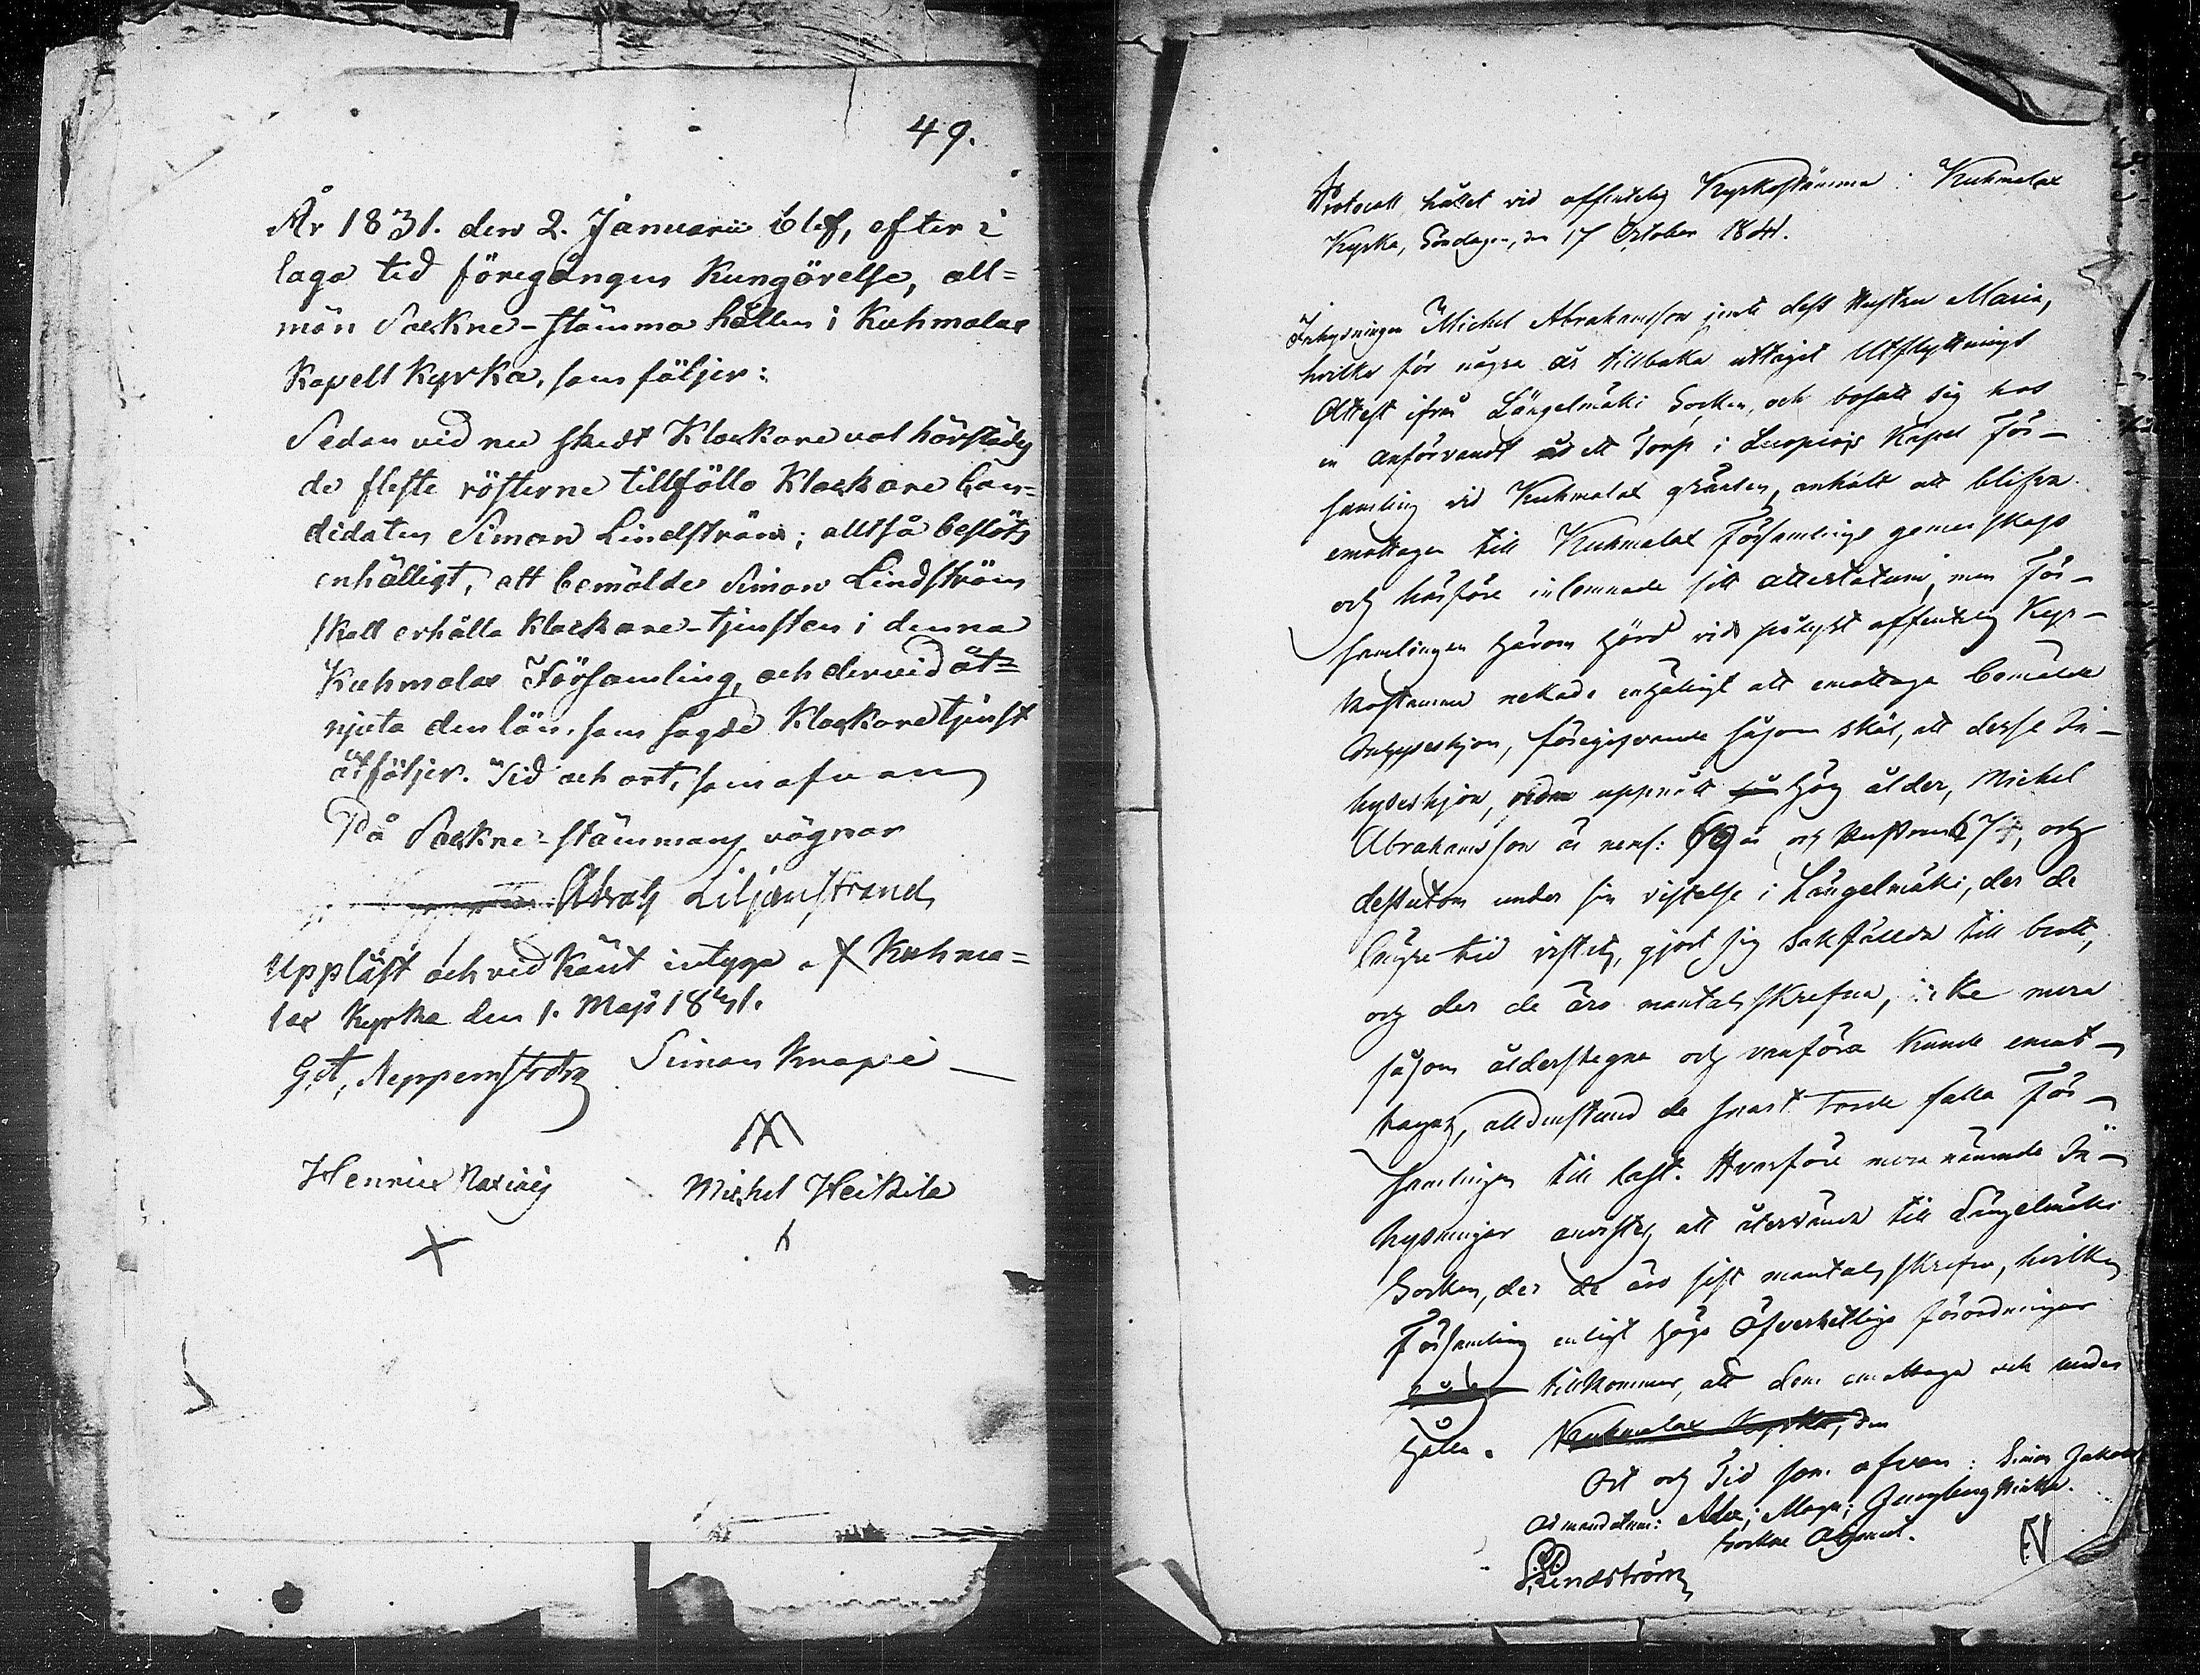 49.
År 1831. den 2. Januarii blef, efter i
laga tid föregången Kungörelse, all=
män Sockne-stämma hållen i Kuhmalax
Kapell Kyrka, som följer:
Sedan vid nu skedt Klockare val härstädes
de fleste rösterne tillföllo Klockare Can=
didaten Simon Lindström; alltså beslöts
enhälligt, att bemälde Simon Lindström
skall erhålla Klockare-tjensten i denna
Kuhmalax Församling, och dervid åt=
njuta den lön, som sagde Klockare tjenst
åtföljer. Tid och ort, som ofvan
På Sockne-stämmans vägnar
Abrah Liljenstrand
Uppläst och vidkänt intyga af Kuhma=
lax Kyrka den 1. Maji 1831.
Simon Knapi
Henric
Michel Heikila
Protocoll hållet vid offentelig Kyrkostämma i Kuhmalax
Kyrka, Söndagen, den 17 October 1841.
Inhysningen Michel Abrahamsson jemte dess Hustru Maria,
hvilka för några år tillbaka uttagit Utflyttnings
Attest ifrån Längelmäki Socken, och bosatt sig hos
en anförvandt på ett Torp i Luopiois Kapel För-
samling vid Kuhmalax gränsen, anhållt att blifva
emottagen till Kuhmalax Församlings gemenskap
och härföre inlemnade sitt attestatum, men För-
samlingen härom hörd vid pålyst offentelig Kyr-
kostämma nekade enhälligt att emottaga bemälde
föregifvande såsom skäl, att desse In-
hyseshjon, redan uppnått hög ålder, Michel
Abrahamsson är neml: år, och Hustrun 67, och
dessutom under sin vistelse i Längelmäki, der de
längre tid vistats, gjort sig sakfällda till brott,
och der de äro mantalsskrefna, icke mera
såsom ålderstegne och vanföra kunde emot-
tagas, alldenstund de snart torde falla För-
samlingen till last. Hvarföre mera nämnde In-
hysningar anvistes att återvända till Längelmäki
Socken, der de äro sist mantalsskrefna, hvilken
Församling enligt höga Öfverhetliga förordningar
tillkommer, att dem emottaga och under
hålla. Kuhmalax Kyrka, den
Ort och Tid som ofvan: Simon Jakobs
Ad mandatum:
Lindström